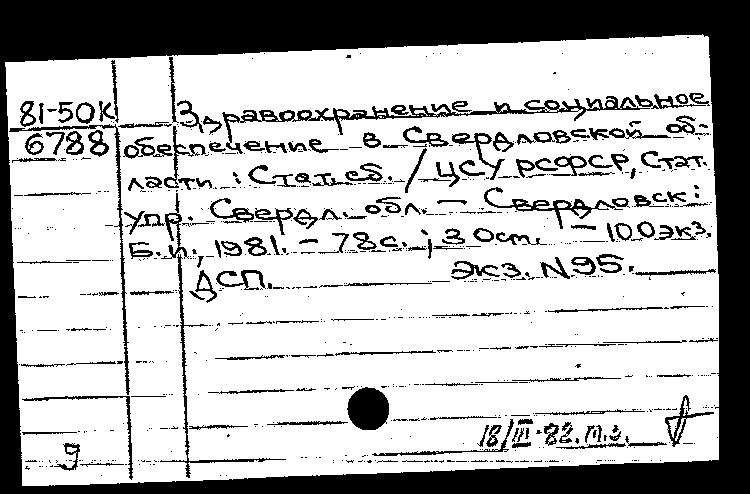 81-50К Здравоохранение и социальное
6788 обеспечение в Свердловской об-
ласти : Стат. сб. / ЦСУ РСФСР, Стат.
упр. Свердл. обл. – Свердловск :
Б.и., 1981. – 78 с. ; 30 см. – 100 экз.
ДСП. Экз. N 95.
18/III-82. т.з.
g